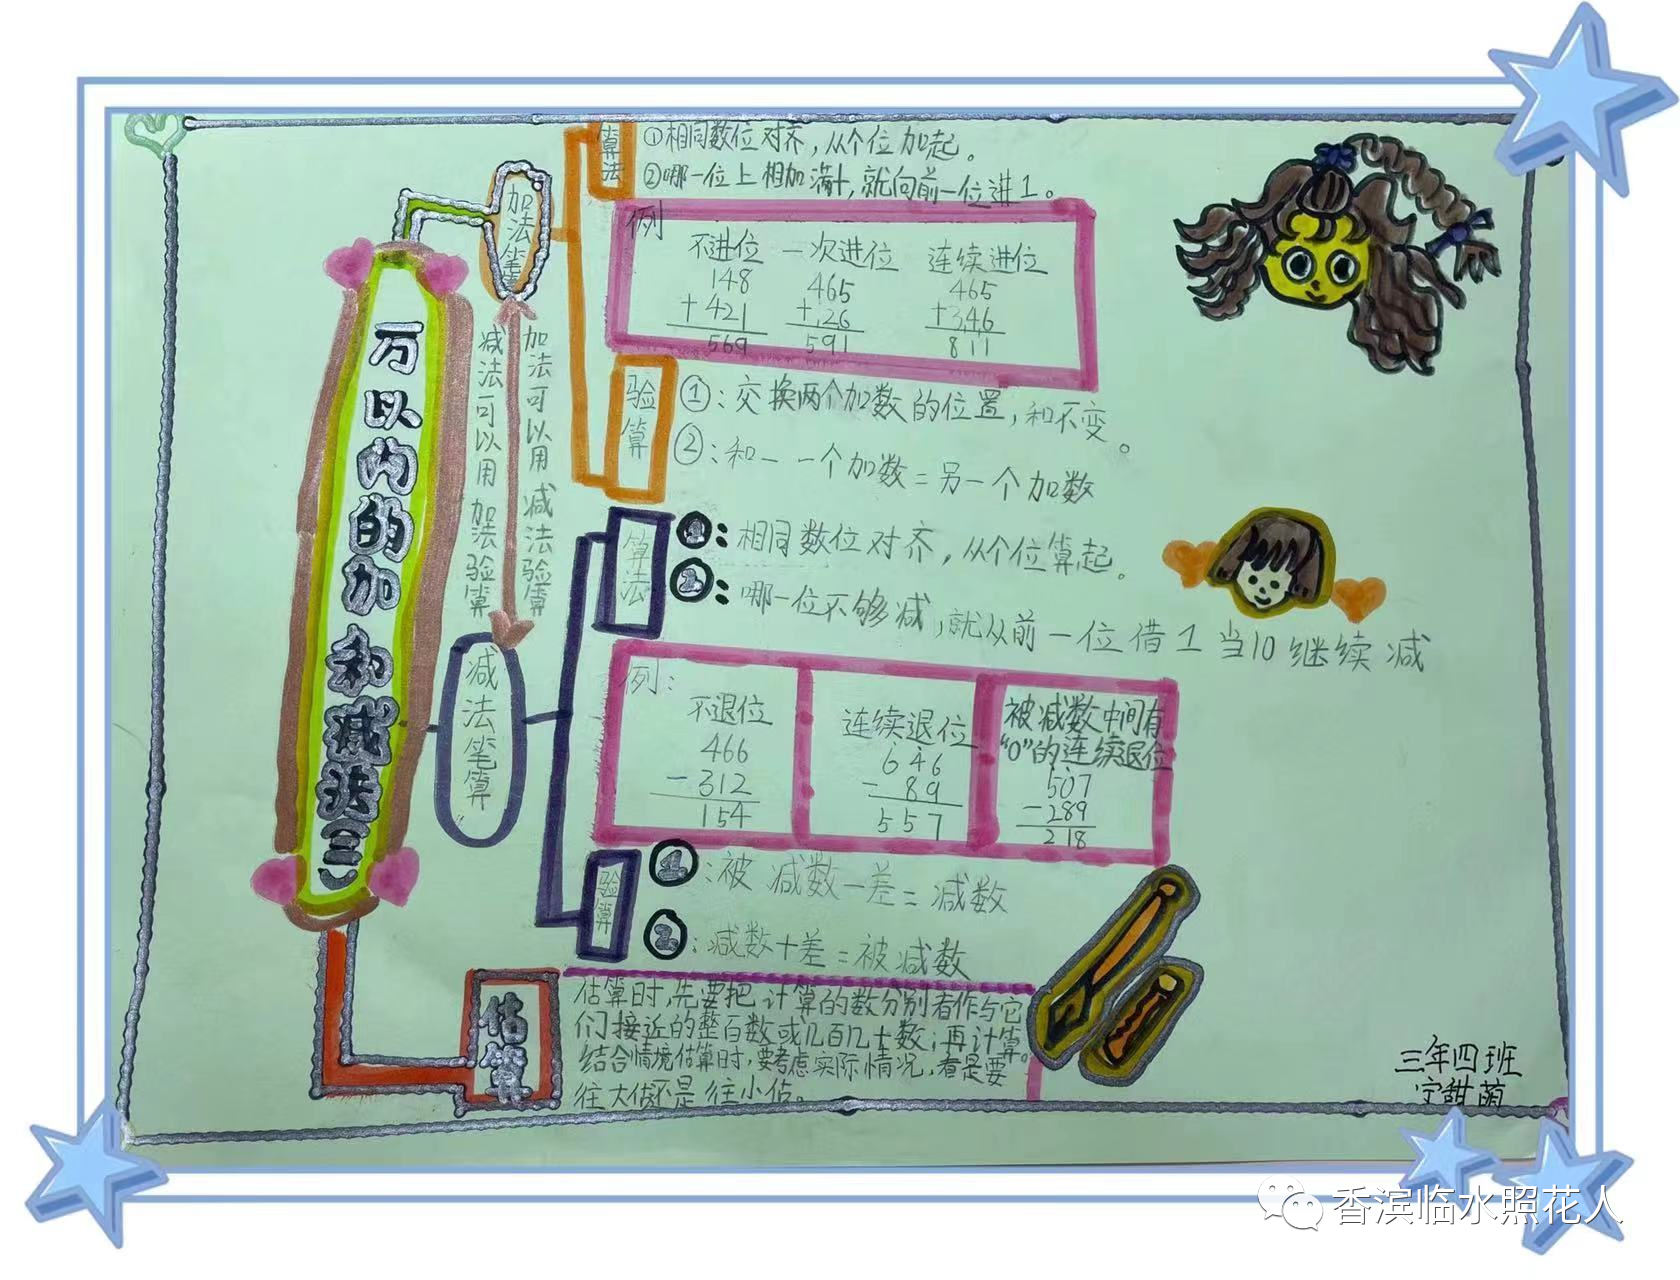 万以内的加和减法(二)
加法笔算
加法可以用减法验算
减法可以用加法验算
算法
①相同数位对齐，从个位加起。
②哪一位上相加满十，就向前一位进1。
例
不进位 一次进位 连续进位
148 465 465
+421 +26 +346
569 591 811
验算
①：交换两个加数的位置，和不变。
②：和一一个加数=另一个加数
减法笔算
算法
1：相同数位对齐，从个位算起。
2：哪一位不够减，就从前一位借1当10继续减
例：
不退位
466
-312
154
连续退位
646
-89
557
被减数中间有
"0"的连续退位
507
-289
218
验算
1：被减数一差=减数
2：减数十差=被减数
估算
估算时，先要把计算的数分别看作与它
们接近的整百数或几百几十数，再计算。
结合情境估算时，要考虑实际情况，看是要
往大估还是往小估。
三年四班
甜萌
香滨临水照花人